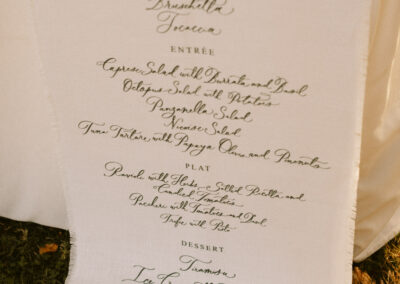 Bruschetta
Focaccia
ENTRÉE
Caprese Salad with Burrata and Basil
Octopus Salad with Potatoes
Panzanella Salad
Nicoise Salad
Tuna Tartare with Papaya Olives and Peanuts
PLAT
Ravioli with Herbs Salted Ricotta and
Candied Tomatoes
Paccheri with Tomatoes and Basil
Trofie with Pesto
DESSERT
Tiramisu
Ice